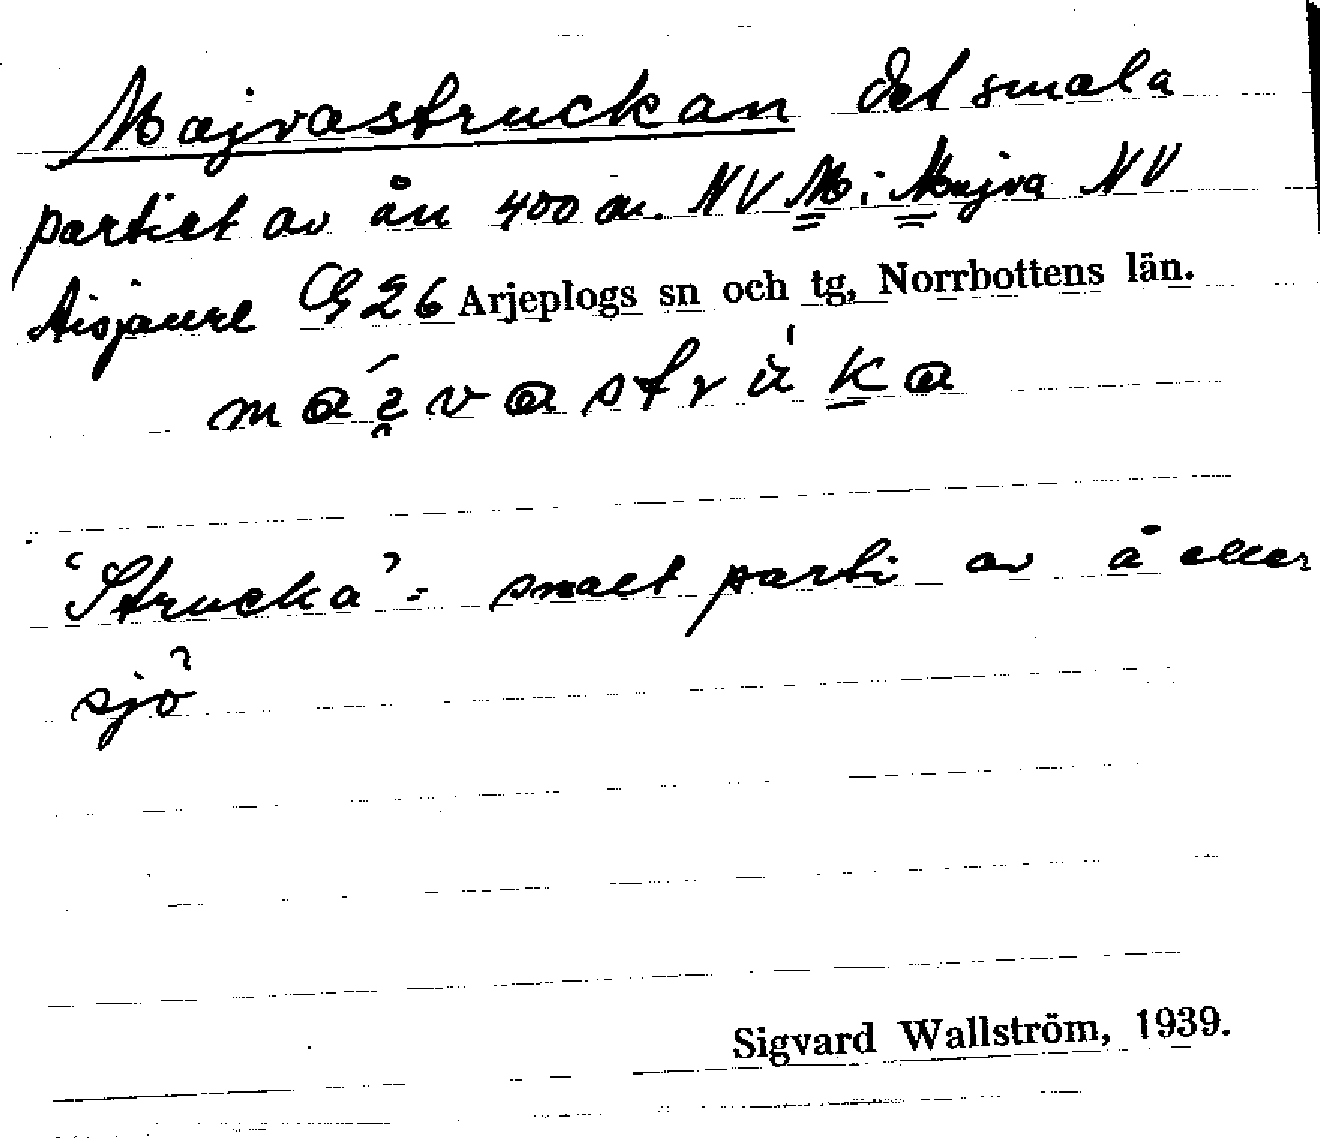 Majvastruckan det smala
partiet av ån 400 m. NV M i Majva NV
Aisjaure G 26 Arjeplogs sn och tg, Norrbottens län.
"Strucka" = smalt parti av å eller
sjö
Sigvard Wallström, 1939.